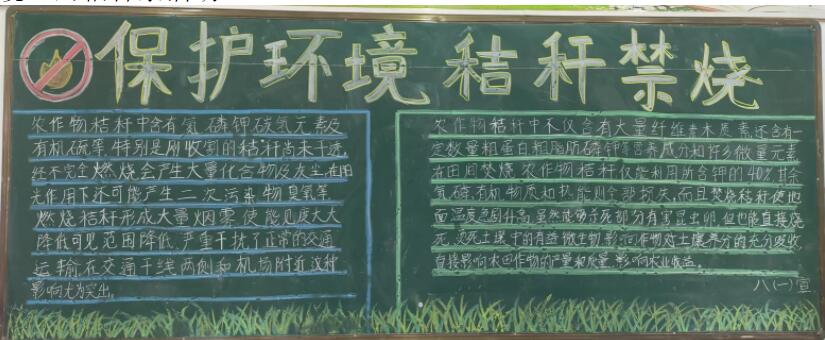 保护环境 秸秆禁烧
农作物秸秆中含有氮、磷、钾、碳、氢元素及
有机硫等。特别是刚收割的秸秆尚未干透,
经不完全燃烧会产生大量
光作用下还可能产生二次污染物臭氧等。
燃烧秸秆形成大量烟雾,使能见度大大
降低可见范围降低,严重干扰了正常的交通
运输在交通干线两侧和机场附近这种
影响尤为突出。
农作物秸秆中不仅含有大量纤维素木质素,还含有一
定数量粗蛋白粗脂肪磷钾等营养成分和许多微量元素
在田间焚烧农作物秸秆仅能利用所含钾的40%其余
氮磷、有机物质和热能则全部损失,而且焚烧秸秆使地
面温度急剧升高虽然能够杀死部分有害昆虫卵但也能直接烧
死、土壤中的有益微生物,影响作物对土壤养分的充分吸收
直接影响农田作物的产量和质量,影响农业收益。
八(一)宣